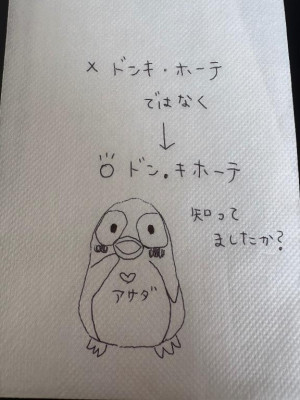 × ドンキ・ホーテ
ではなく
↓
○ ドン.キホーテ
知って
ましたか?
♡
アサダ